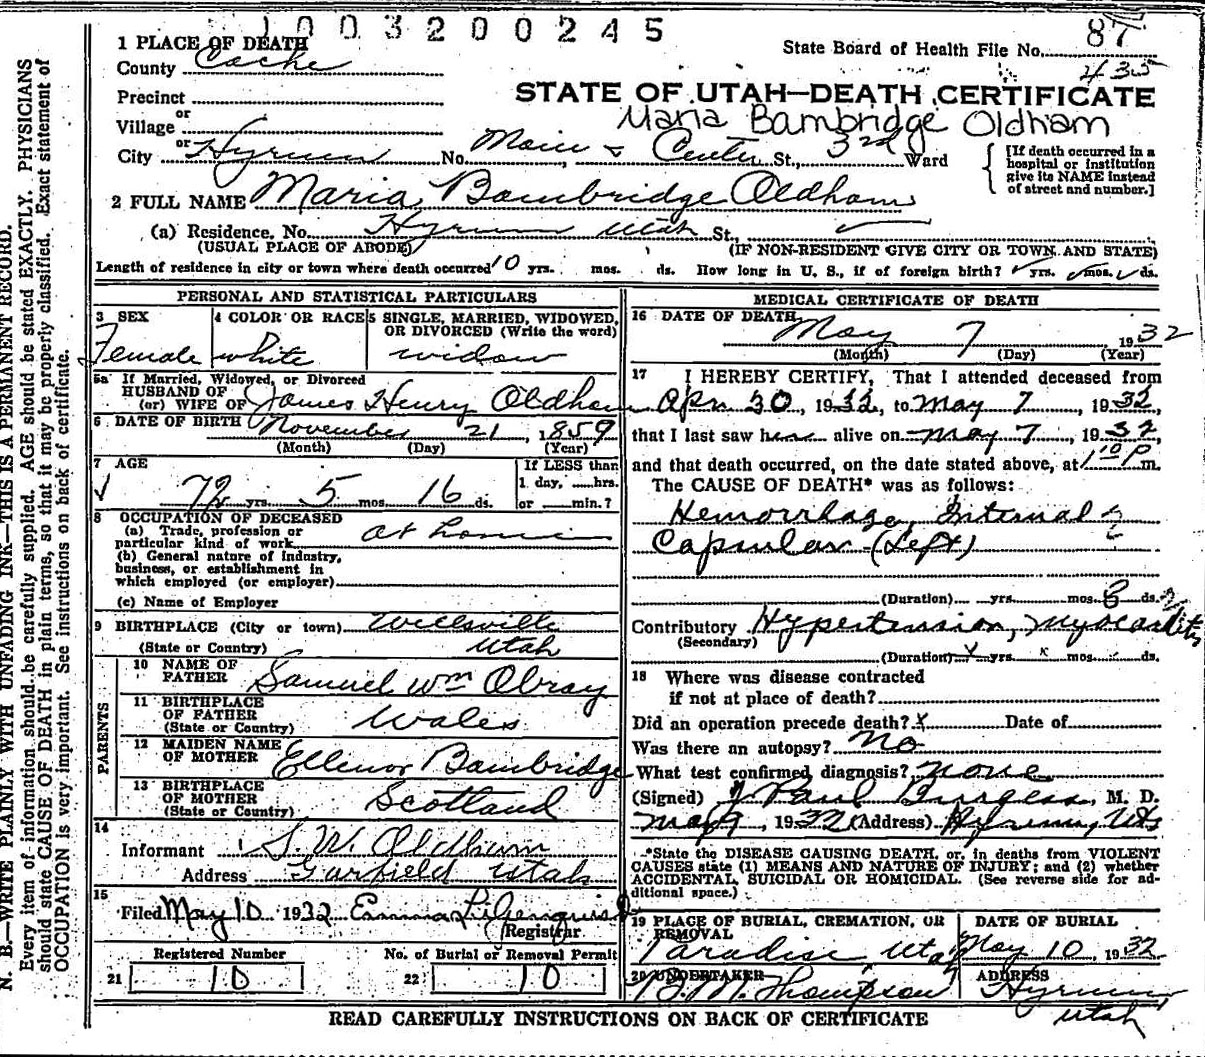 1003200245
87
State Board of Health File No.
435
1 PLACE OF DEATH
County Cache
STATE OF UTAH—DEATH CERTIFICATE
Precinct
or
Village
Maria Bambridge Oldham
or
City Hyrum No. Main & Center St., 3rd Ward
[If death occurred in a
hospital or institution
give its NAME instead
of street and number.]
2 FULL NAME Maria Bambridge Oldham
(a) Residence, No. Hyrum Utah St.,
(USUAL PLACE OF ABODE) (IF NON-RESIDENT GIVE CITY OR TOWN AND STATE)
Length of residence in city or town where death occurred 10 yrs. mos. ds. How long in U. S., if of foreign birth? yrs. mos. ds.
PERSONAL AND STATISTICAL PARTICULARS
3 SEX
Female
4 COLOR OR RACE
white
5 SINGLE, MARRIED, WIDOWED,
OR DIVORCED (Write the word)
widow
5a If Married, Widowed, or Divorced
HUSBAND OF
(or) WIFE OF James Henry Oldham
6 DATE OF BIRTH November 21, 1859
(Month) (Day) (Year)
7 AGE
72 yrs. 5 mos. 16 ds.
If LESS than
1 day, hrs.
or min.?
8 OCCUPATION OF DECEASED
(a) Trade, profession or
particular kind of work at home
(b) General nature of industry,
business, or establishment in
which employed (or employer)
(c) Name of Employer
9 BIRTHPLACE (City or town) Wellsville
(State or Country) Utah
PARENTS
10 NAME OF
FATHER Samuel Wm Obray
11 BIRTHPLACE
OF FATHER Wales
(State or Country)
12 MAIDEN NAME
OF MOTHER Ellenor Bambridge
13 BIRTHPLACE
OF MOTHER Scotland
(State or Country)
14
Informant S. W. Oldham
Address Garfield Utah
15
Filed May 10 1932 Emma
Registrar
Registered Number
21 10
No. of Burial or Removal Permit
22 10
MEDICAL CERTIFICATE OF DEATH
16 DATE OF DEATH
May 7 1932
(Month) (Day) (Year)
17 I HEREBY CERTIFY, That I attended deceased from
Apr 30, 1932, to May 7, 1932,
that I last saw her alive on May 7, 1932,
and that death occurred, on the date stated above, at 1 10 P m.
The CAUSE OF DEATH* was as follows:
Hemorrhage, Internal
Capsular (Left)
(Duration) yrs. mos. 8 ds.
Contributory Hypertension, Myocarditis
(Secondary)
(Duration) yrs. mos. ds.
18 Where was disease contracted
if not at place of death?
Did an operation precede death? x Date of
Was there an autopsy? No
What test confirmed diagnosis? none
(Signed) J Paul Burgess, M. D.
May 9, 1932 (Address) Hyrum, Ut
*State the DISEASE CAUSING DEATH, or, in deaths from VIOLENT
CAUSES state (1) MEANS AND NATURE OF INJURY; and (2) whether
ACCIDENTAL, SUICIDAL OR HOMICIDAL. (See reverse side for ad-
ditional space.)
19 PLACE OF BURIAL, CREMATION, OR
REMOVAL
Paradise Utah
DATE OF BURIAL
May 10, 1932
20 UNDERTAKER
Thompson
ADDRESS
Hyrum
Utah
READ CAREFULLY INSTRUCTIONS ON BACK OF CERTIFICATE
N. B.—WRITE PLAINLY WITH UNFADING INK—THIS IS A PERMANENT RECORD.
Every item of information should be carefully supplied. AGE should be stated EXACTLY. PHYSICIANS
should state CAUSE OF DEATH in plain terms, so that it may be properly classified. Exact statement of
OCCUPATION is very important. See instructions on back of certificate.